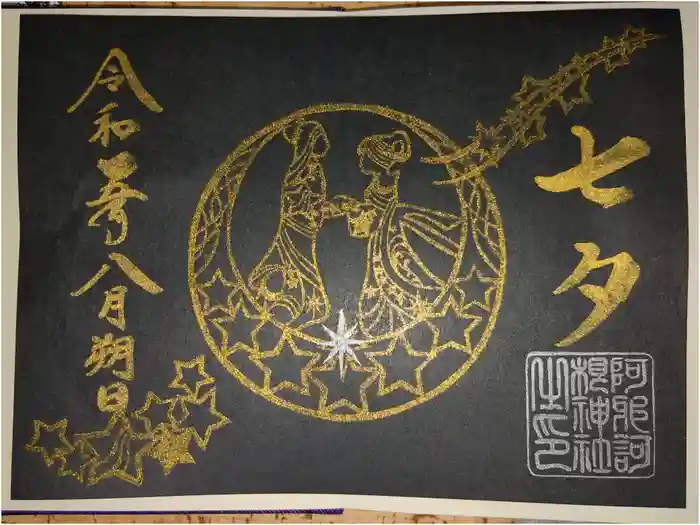 七夕
令和 八月朔日
阿邪訶
根神社
之印